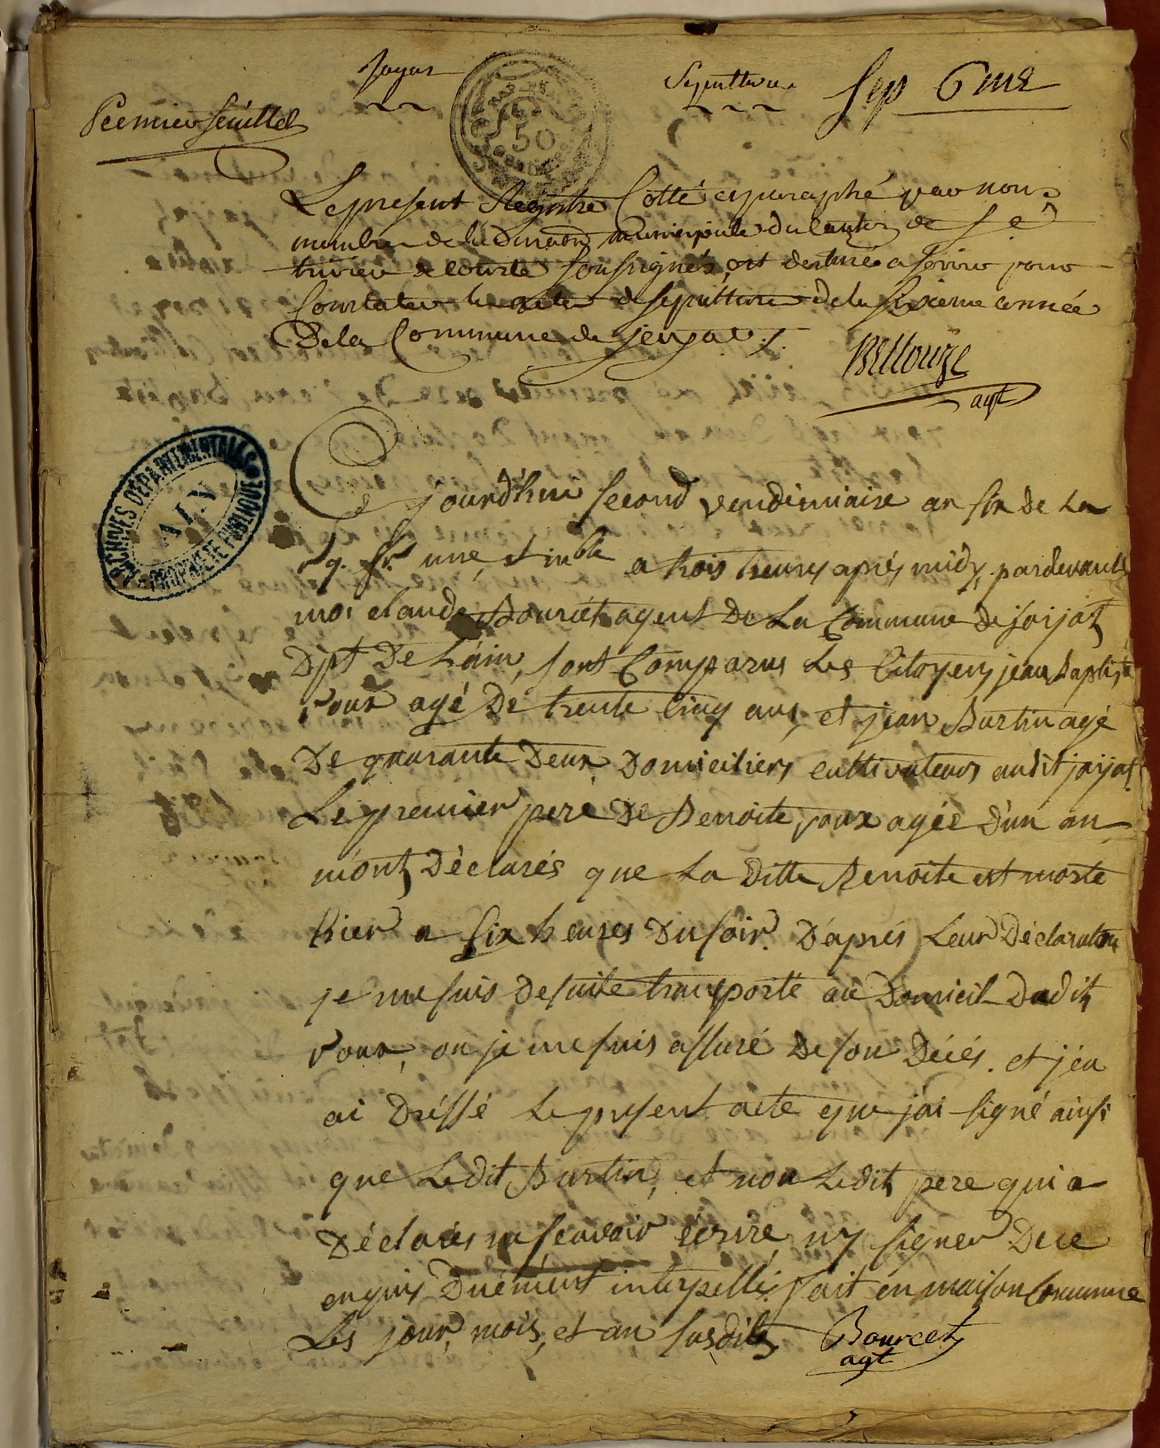 Jayat Sepulture Sep 6me
Premier feuillet
50
Le present Registre Cotté et paraphé par nous
membre de l'administration municipale du canton de St
trivier de courtes soussignés, est destiné a servir pour
Constater les actes de sepulture de la sixieme année
De la Commune de Jayat
Bellouze
agt
ARCHIVES DEPARTEMENTALES
AIN
PROPRIETE PUBLIQUE
Ce jourd'hui second vendemiaire an six de La
rep. fr. une et indble a trois heures aprés midy, pardevant
moi claude Bourcet agent De La Commune De jaijat
Dpt De L'ain, sont Comparus Les Citoyens jean Baptiste
roux agé De trente Cinq ans, et jean Burtin agé
De quarante Deux, Domiciliers cultivateurs audit jaijat
Le premier pere De Benoite roux agée D'un an
m'ont Déclarés que La Ditte Benoite est morte
hier a six heures Du soir. D'aprés Leur Déclaration
je me suis De suite transporté au Domicil Dudit
roux, ou je me suis assuré De son Décés. et j'en
ai Dréssé Le present acte que j'ai signé ainsi
que Ledit Burtin, et non Ledit pere qui a
Déclarés ne scavoir écrire ny signer De ce
enquis Duément interpellé. fait en maison Commune
Les jour, mois, et an susdits Bourcet
agt